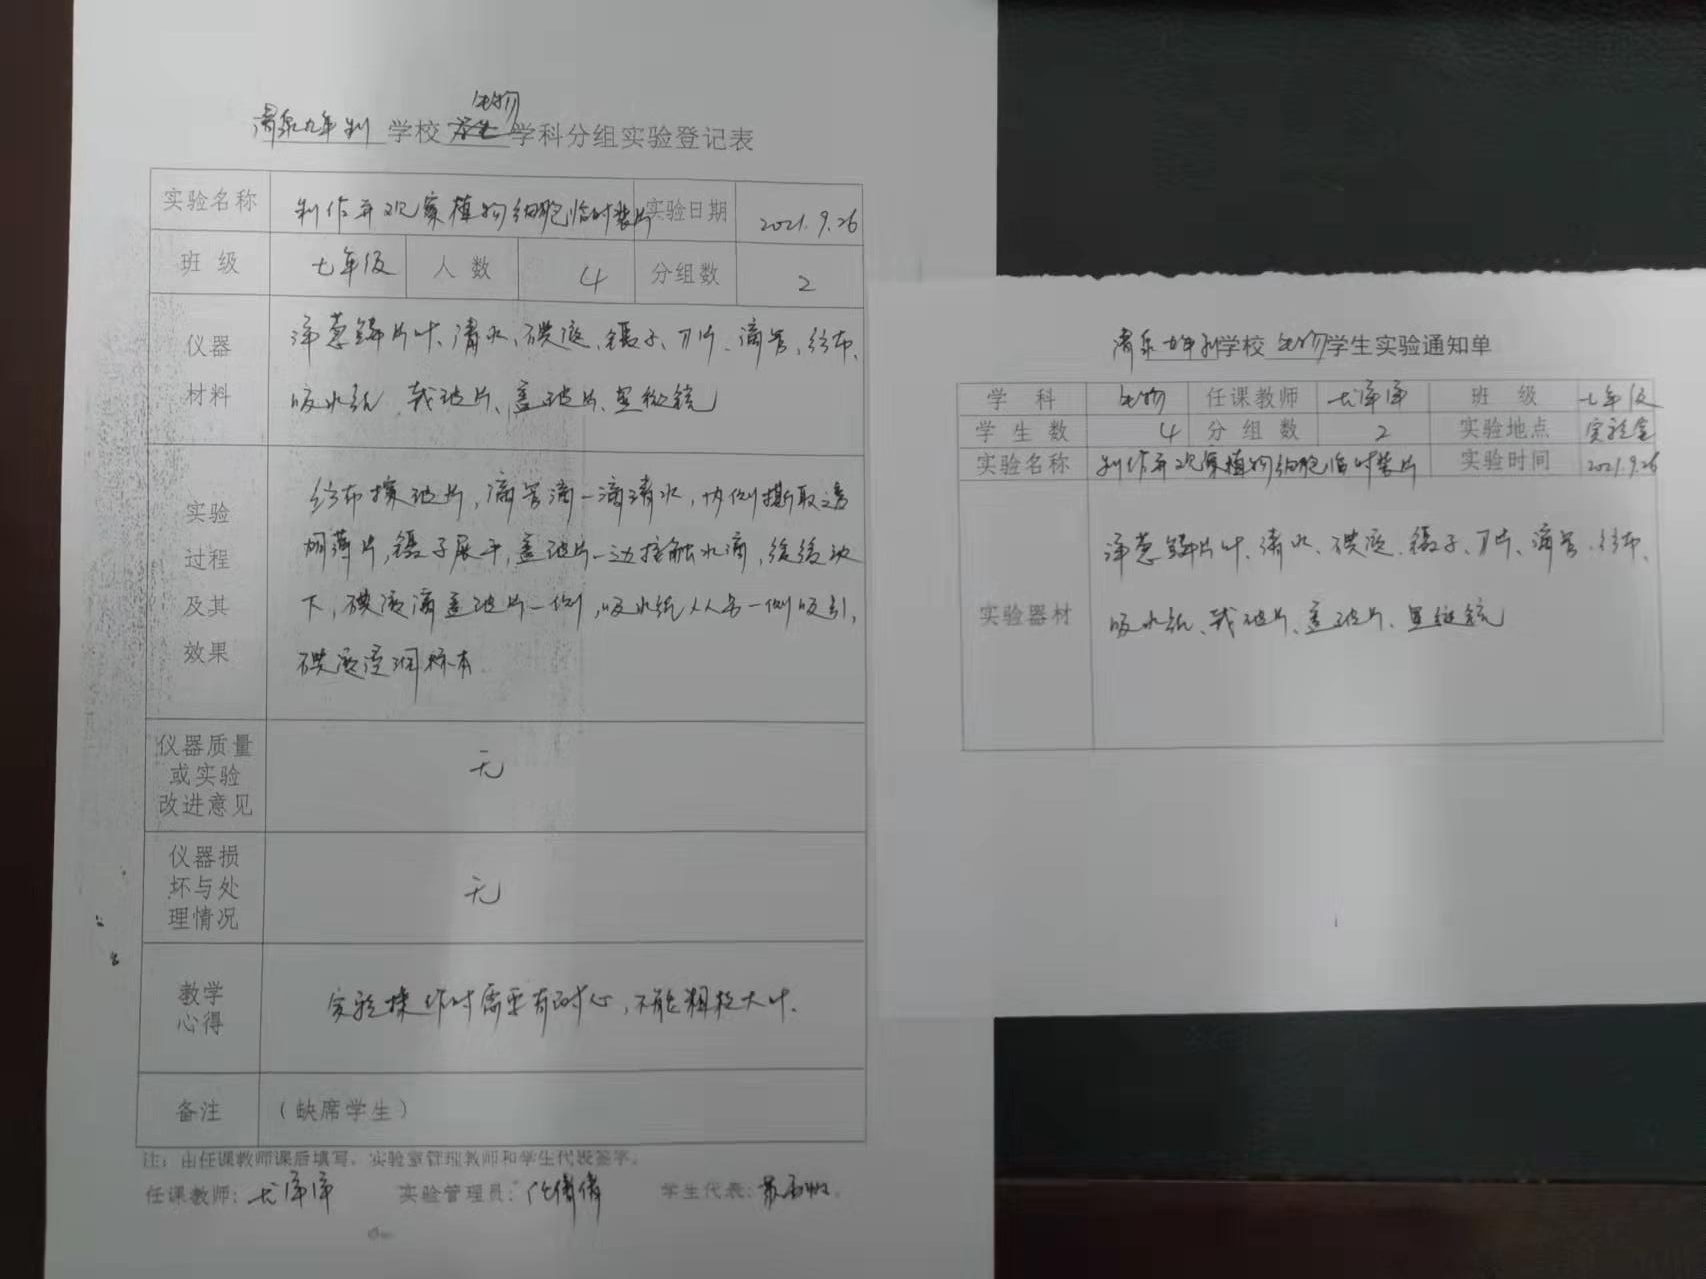 清泉九年制学校生物学科分组实验登记表
实验名称 制作并观察植物细胞临时装片 实验日期 2021.9.26
班级 七年级 人数 4 分组数 2
仪器材料
洋葱鳞片叶、清水、碘液、镊子、刀片、滴管、纱布、
吸水纸、载玻片、盖玻片、显微镜
实验过程及其效果
纱布擦玻片,滴管滴一滴清水,内侧撕取透
明薄片,镊子展平,盖玻片一边接触水滴,缓缓放
下,碘液滴盖玻片一侧,吸水纸从另一侧吸引,
碘液浸润标本.
仪器质量或实验改进意见 无
仪器损坏与处理情况 无
教学心得 实验操作时需要有耐心,不能粗枝大叶.
备注 (缺席学生)
注:由任课教师课后填写,实验室管理教师和学生代表签字。
任课教师: 实验管理员: 学生代表:
清泉九年制学校生物学生实验通知单
学科 生物 任课教师 班级 七年级
学生数 4 分组数 2 实验地点 实验室
实验名称 制作并观察植物细胞临时装片 实验时间 2021.9.26
实验器材
洋葱鳞片叶、清水、碘液、镊子、刀片、滴管、纱布、
吸水纸、载玻片、盖玻片、显微镜